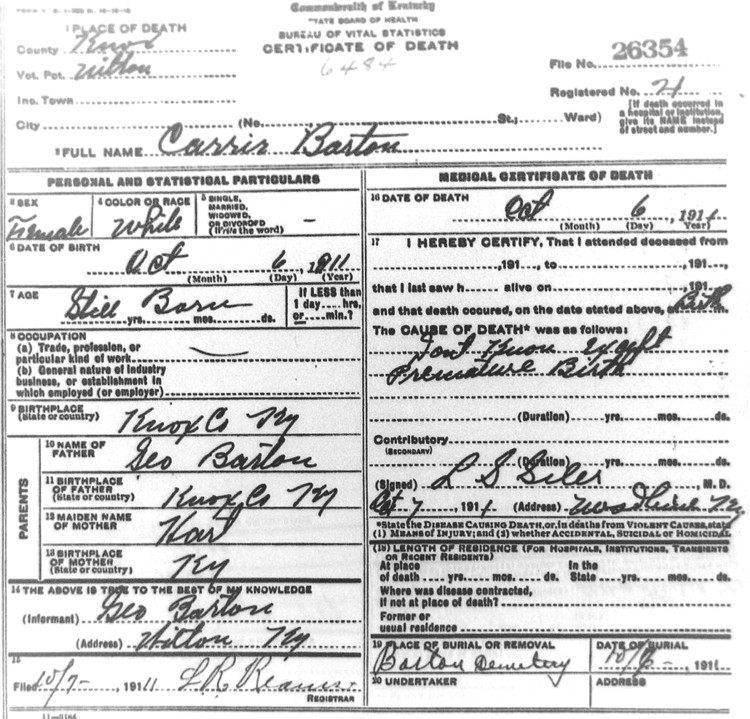 Commonwealth of Kentucky
STATE BOARD OF HEALTH
BUREAU OF VITAL STATISTICS
CERTIFICATE OF DEATH
6484
1 PLACE OF DEATH
County Knox
Vot. Pct. Wilton
Ino. Town
City (No. St.; Ward)
File No. 26354
Registered No. 21
[If death occurred in a hospital or institution, give its NAME instead of street and number.]
2 FULL NAME Carris Barton
PERSONAL AND STATISTICAL PARTICULARS
3 SEX Female
4 COLOR OR RACE White
5 SINGLE, MARRIED, WIDOWED, OR DIVORCED (Write the word) -
6 DATE OF BIRTH
Oct 6, 1911
(Month) (Day) (Year)
7 AGE Still Born
yrs. mos. ds.
If LESS than 1 day hrs. or min.?
8 OCCUPATION
(a) Trade, profession, or particular kind of work
(b) General nature of Industry business, or establishment in which employed (or employer)
9 BIRTHPLACE (State or country) Knox Co Ky
PARENTS
10 NAME OF FATHER Geo Barton
11 BIRTHPLACE OF FATHER (State or country) Knox Co Ky
12 MAIDEN NAME OF MOTHER Hart
13 BIRTHPLACE OF MOTHER (State or country) Ky
14 THE ABOVE IS TRUE TO THE BEST OF MY KNOWLEDGE
(Informant) Geo Barton
(Address) Wilton Ky
15
Filed 10/7-, 1911
REGISTRAR
11-0184
MEDICAL CERTIFICATE OF DEATH
16 DATE OF DEATH
Oct 6, 1911
(Month) (Day) (Year)
17 I HEREBY CERTIFY, That I attended deceased from
, 191 , to , 191 ,
that I last saw h alive on , 191 ,
and that death occured, on the date stated above, at Birth m.
The CAUSE OF DEATH* was as follows:
Dont Know Except
Premature Birth
(Duration) yrs. mos. ds.
Contributory (SECONDARY)
(Duration) yrs. mos. ds.
(Signed) L S Siler, M. D.
Oct 7, 1911 (Address) Woodbine Ky
*State the DISEASE CAUSING DEATH, or, in deaths from VIOLENT CAUSES, state (1) MEANS OF INJURY; and (2) whether ACCIDENTAL, SUICIDAL or HOMICIDAL
(18) LENGTH OF RESIDENCE (FOR HOSPITALS, INSTITUTIONS, TRANSIENTS OR RECENT RESIDENTS)
At place of death yrs. mos. ds. In the State yrs. mos. ds.
Where was disease contracted, if not at place of death?
Former or usual residence
19 PLACE OF BURIAL OR REMOVAL
Barton Cemetery
DATE OF BURIAL
10/6-, 1911
20 UNDERTAKER
ADDRESS